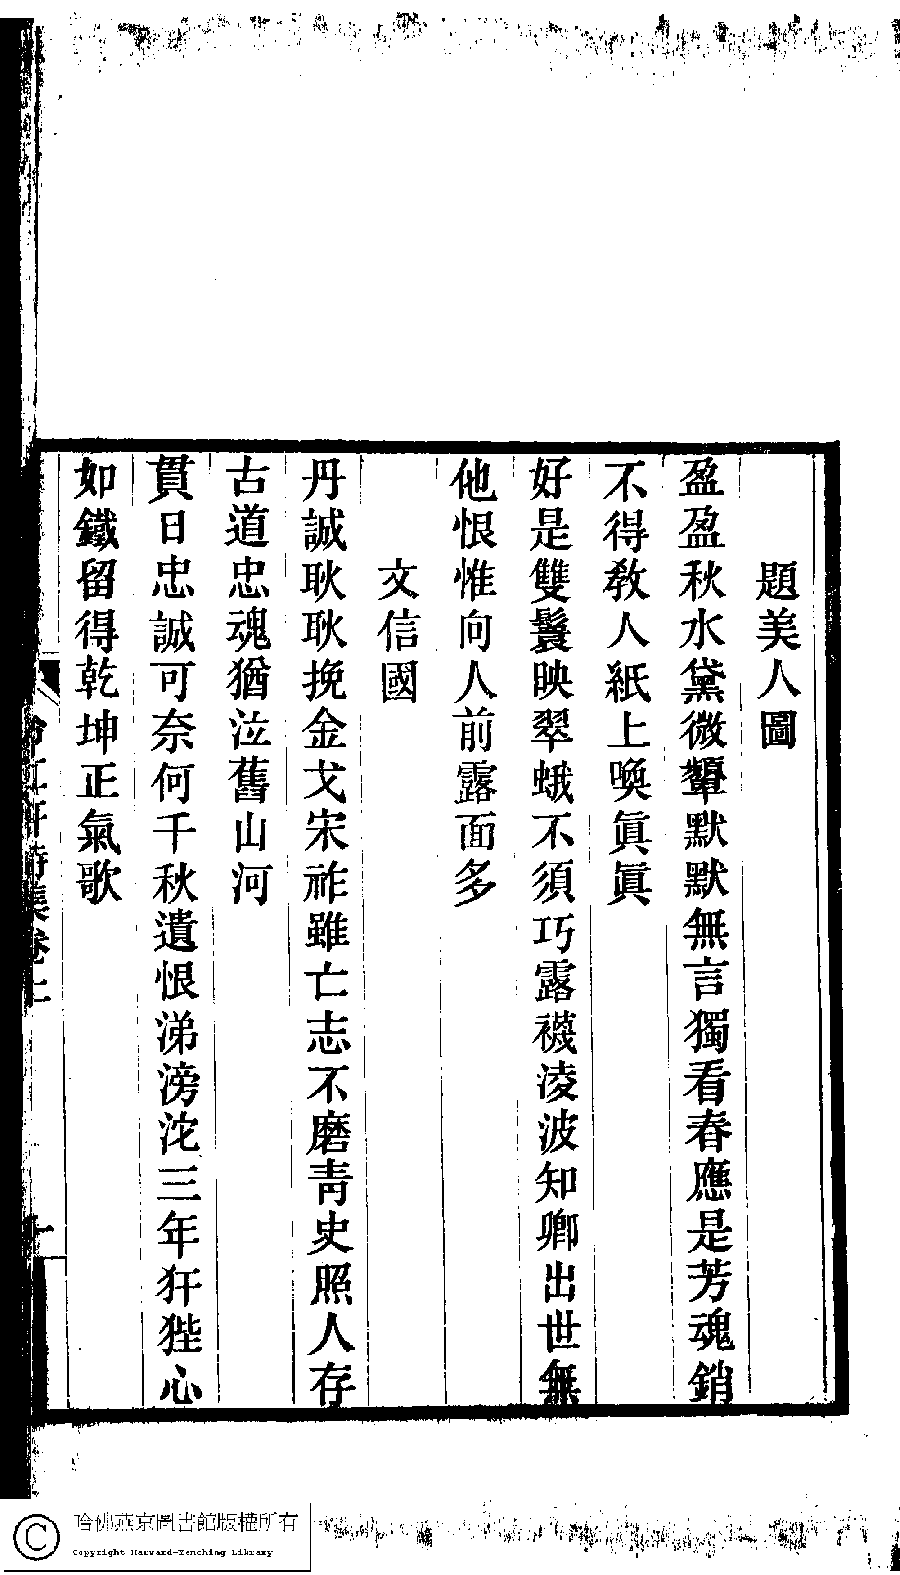 題美人圖
盈盈秋水黛微顰默默無言獨看春應是芳魂銷
不得教人紙上喚眞眞
好是雙鬟映翠蛾不須巧露襪凌波知卿出世無
他恨惟向人前露面多
文信國
丹誠耿耿挽金戈宋祚雖亡志不磨靑史照人存
古道忠魂猶泣舊山河
貫日忠誠可奈何千秋遺恨涕滂沱三年犴狴心
如鐵留得乾坤正氣歌
軒詩集卷上
十
哈佛燕京圖書館版權所有
Copyright Harvard-Yenching Library